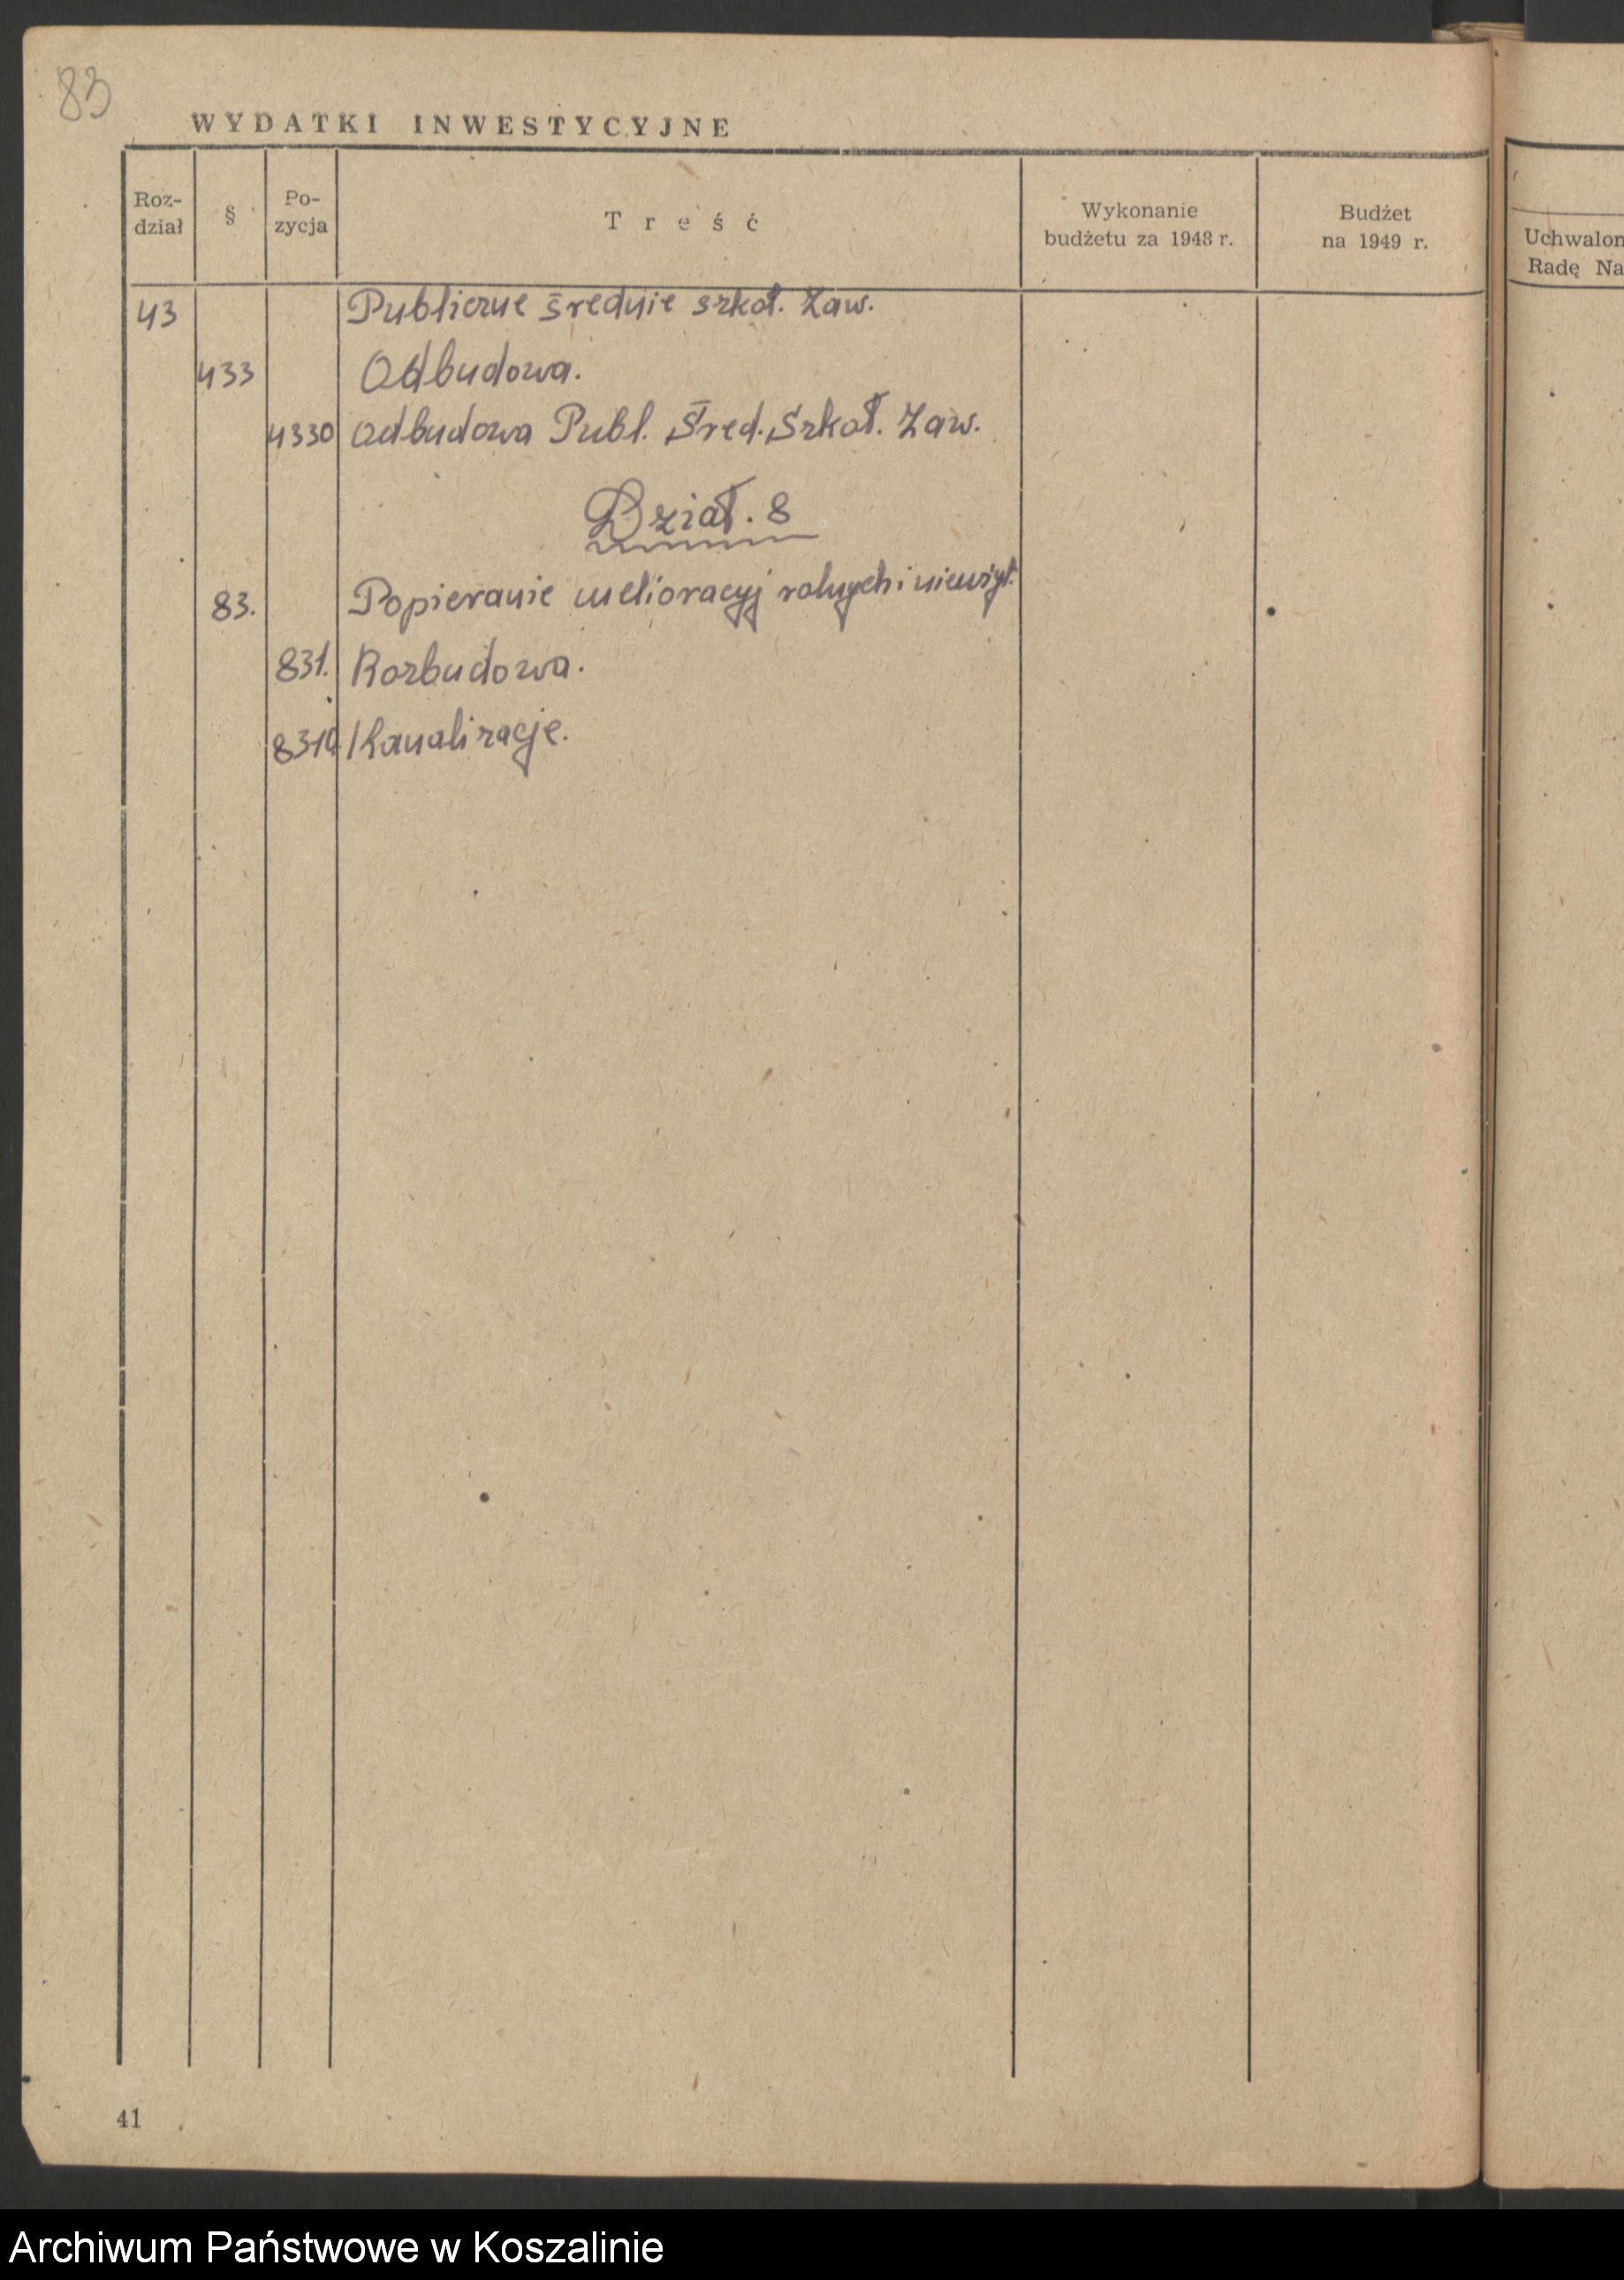 83
WYDATKI INWESTYCYJNE
Roz-
dział
§
Po-
zycja
Treść
Wykonanie
budżetu za 1948 r.
Budżet
na 1949 r.
Uchwalon
Radę Na
43 Publiczne średnie szkoł. Zaw.
433 Odbudowa.
4330 Odbudowa Publ. Śred. Szkoł. Zaw.
Dział. 8
83. Popieranie melioracyj rolnych i
831. Rozbudowa.
8310 Kanalizacje.
41
Archiwum Państwowe w Koszalinie